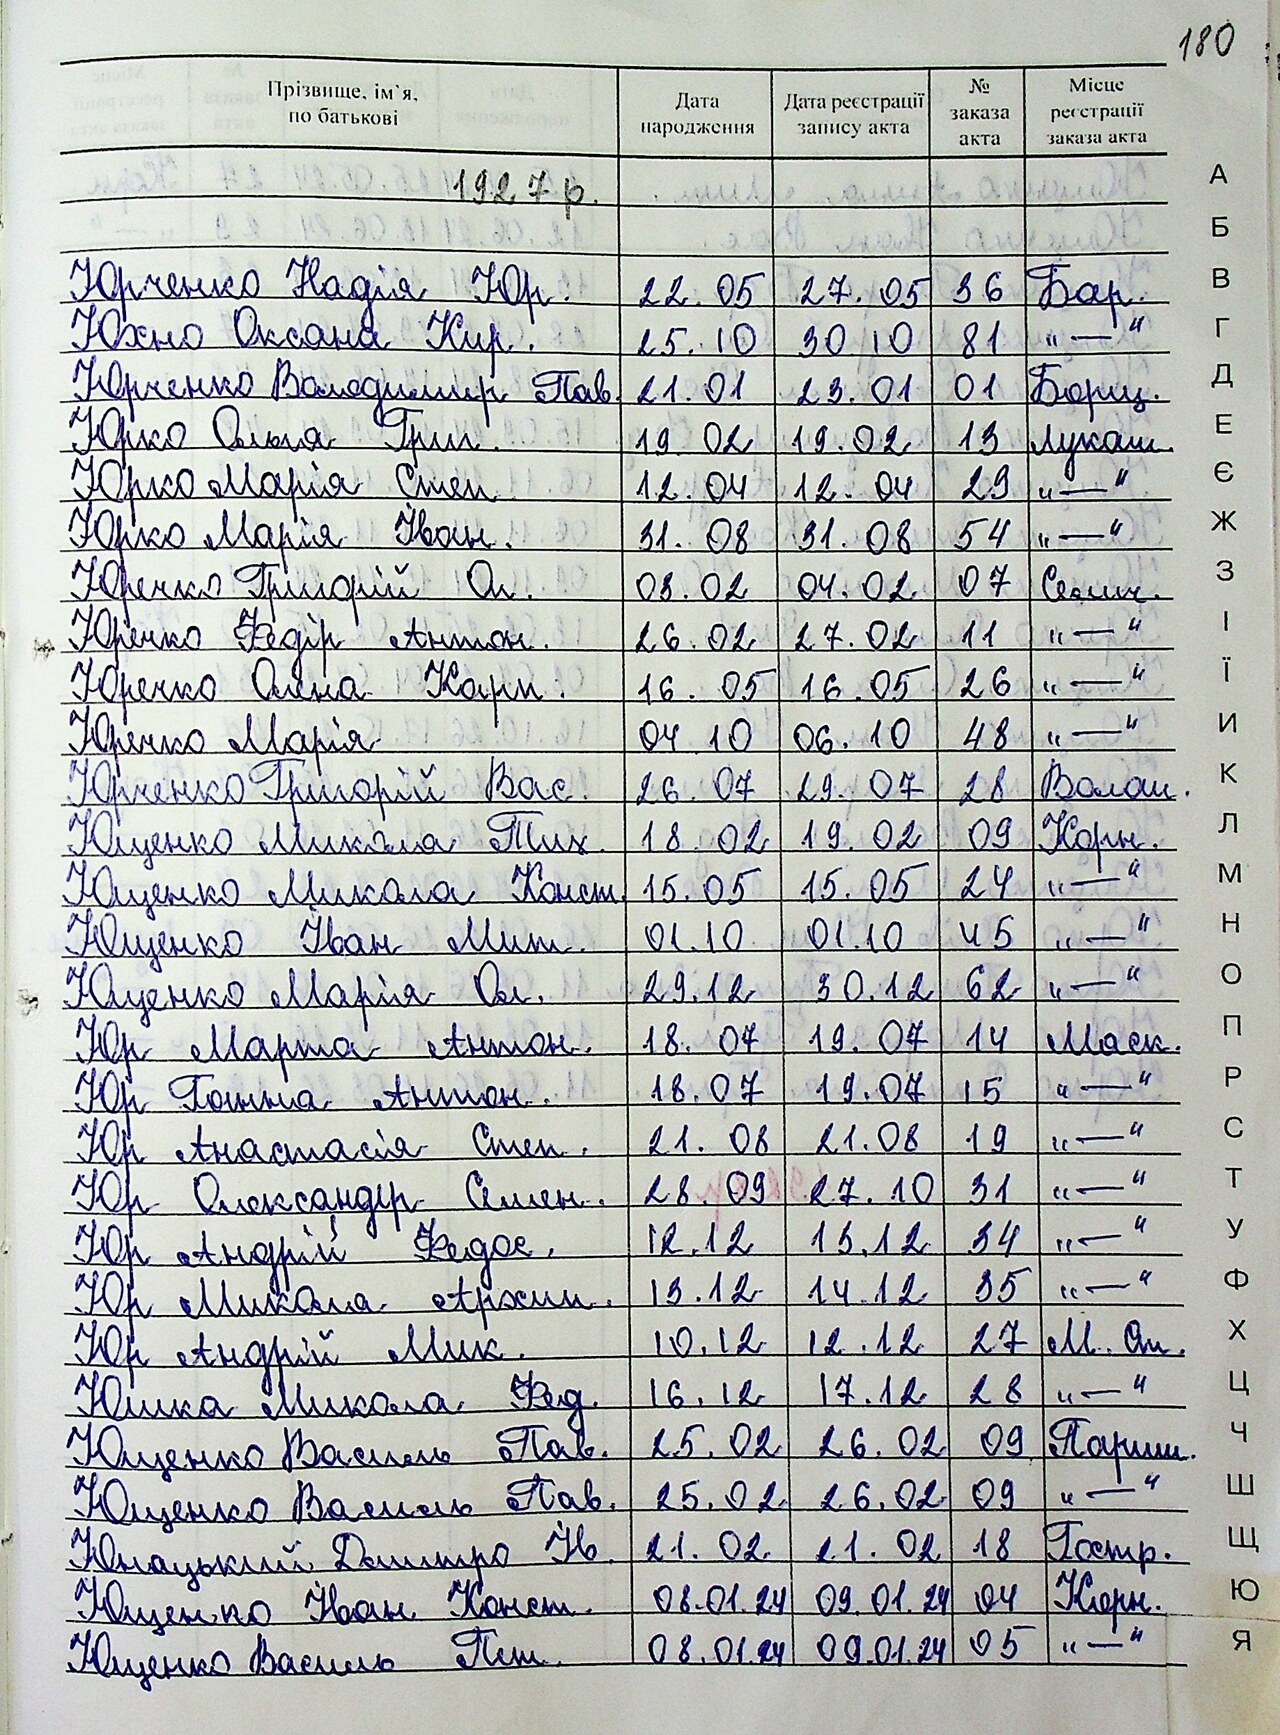 180
Прізвище, ім'я, по батькові Дата народження Дата реєстрації запису акта № заказа акта Місце реєстрації заказа акта
1927 р.
Юрченко Надія Юр. 22.05 27.05 36 Бар.
Юхно Оксана Кир. 25.10 30 10 81 „—"
Юрченко Володимир Пав. 21.01 23.01 01 Борщ.
Юрко Ольга Григ. 19 02 19.02 13 Лукаш.
Юрко Марія Степ. 12.04 12.04 29 „—"
Юрко Марія Іван. 31.08 31.08 54 „—"
Юречко Григорій Ол. 03.02 04.02 07 Селич.
Юречко Федір Антон. 26.02 27.02 11 „—"
Юречко Олена Карп. 16.05 16.05 26 „—"
Юречко Марія 04 10 06.10 48 „—"
Юрченко Григорій Вас. 26.07 29.07 28 Волош.
Ющенко Микола Тих. 18.02 19.02 09 Корн.
Ющенко Микола Конст. 15.05 15.05 24 „—"
Ющенко Іван Мит. 01.10 01.10 45 „—"
Ющенко Марія Ол. 29.12 30.12 62 „—"
Юр Марта Антон. 18.07 19.07 14 Маск.
Юр Ганна Антон. 18.07 19.07 15 „—"
Юр Анастасія Степ. 21.08 21.08 19 „—"
Юр Олександр Семен. 28.09 27.10 31 „—"
Юр Андрій Федос. 12.12 13.12 34 „—"
Юр Микола Архип. 13.12 14.12 35 „—"
Юр Андрій Мик. 10.12 12.12 27 М. Ол.
Юшка Микола Фед. 16.12 17.12 28 „—"
Ющенко Василь Пав. 25.02 26.02 09 Париш.
Ющенко Василь Пав. 25.02 26.02 09 „—"
Юнацький Дмитро Ів. 21.02 21.02 18 Гостр.
Ющенко Іван Конст. 08.01.24 09.01.24 04 Корн.
Ющенко Василь Пет. 08.01.24 09.01.24 05 „—"
А
Б
В
Г
Д
Е
Є
Ж
З
І
Ї
И
К
Л
М
Н
О
П
Р
С
Т
У
Ф
Х
Ц
Ч
Ш
Щ
Ю
Я